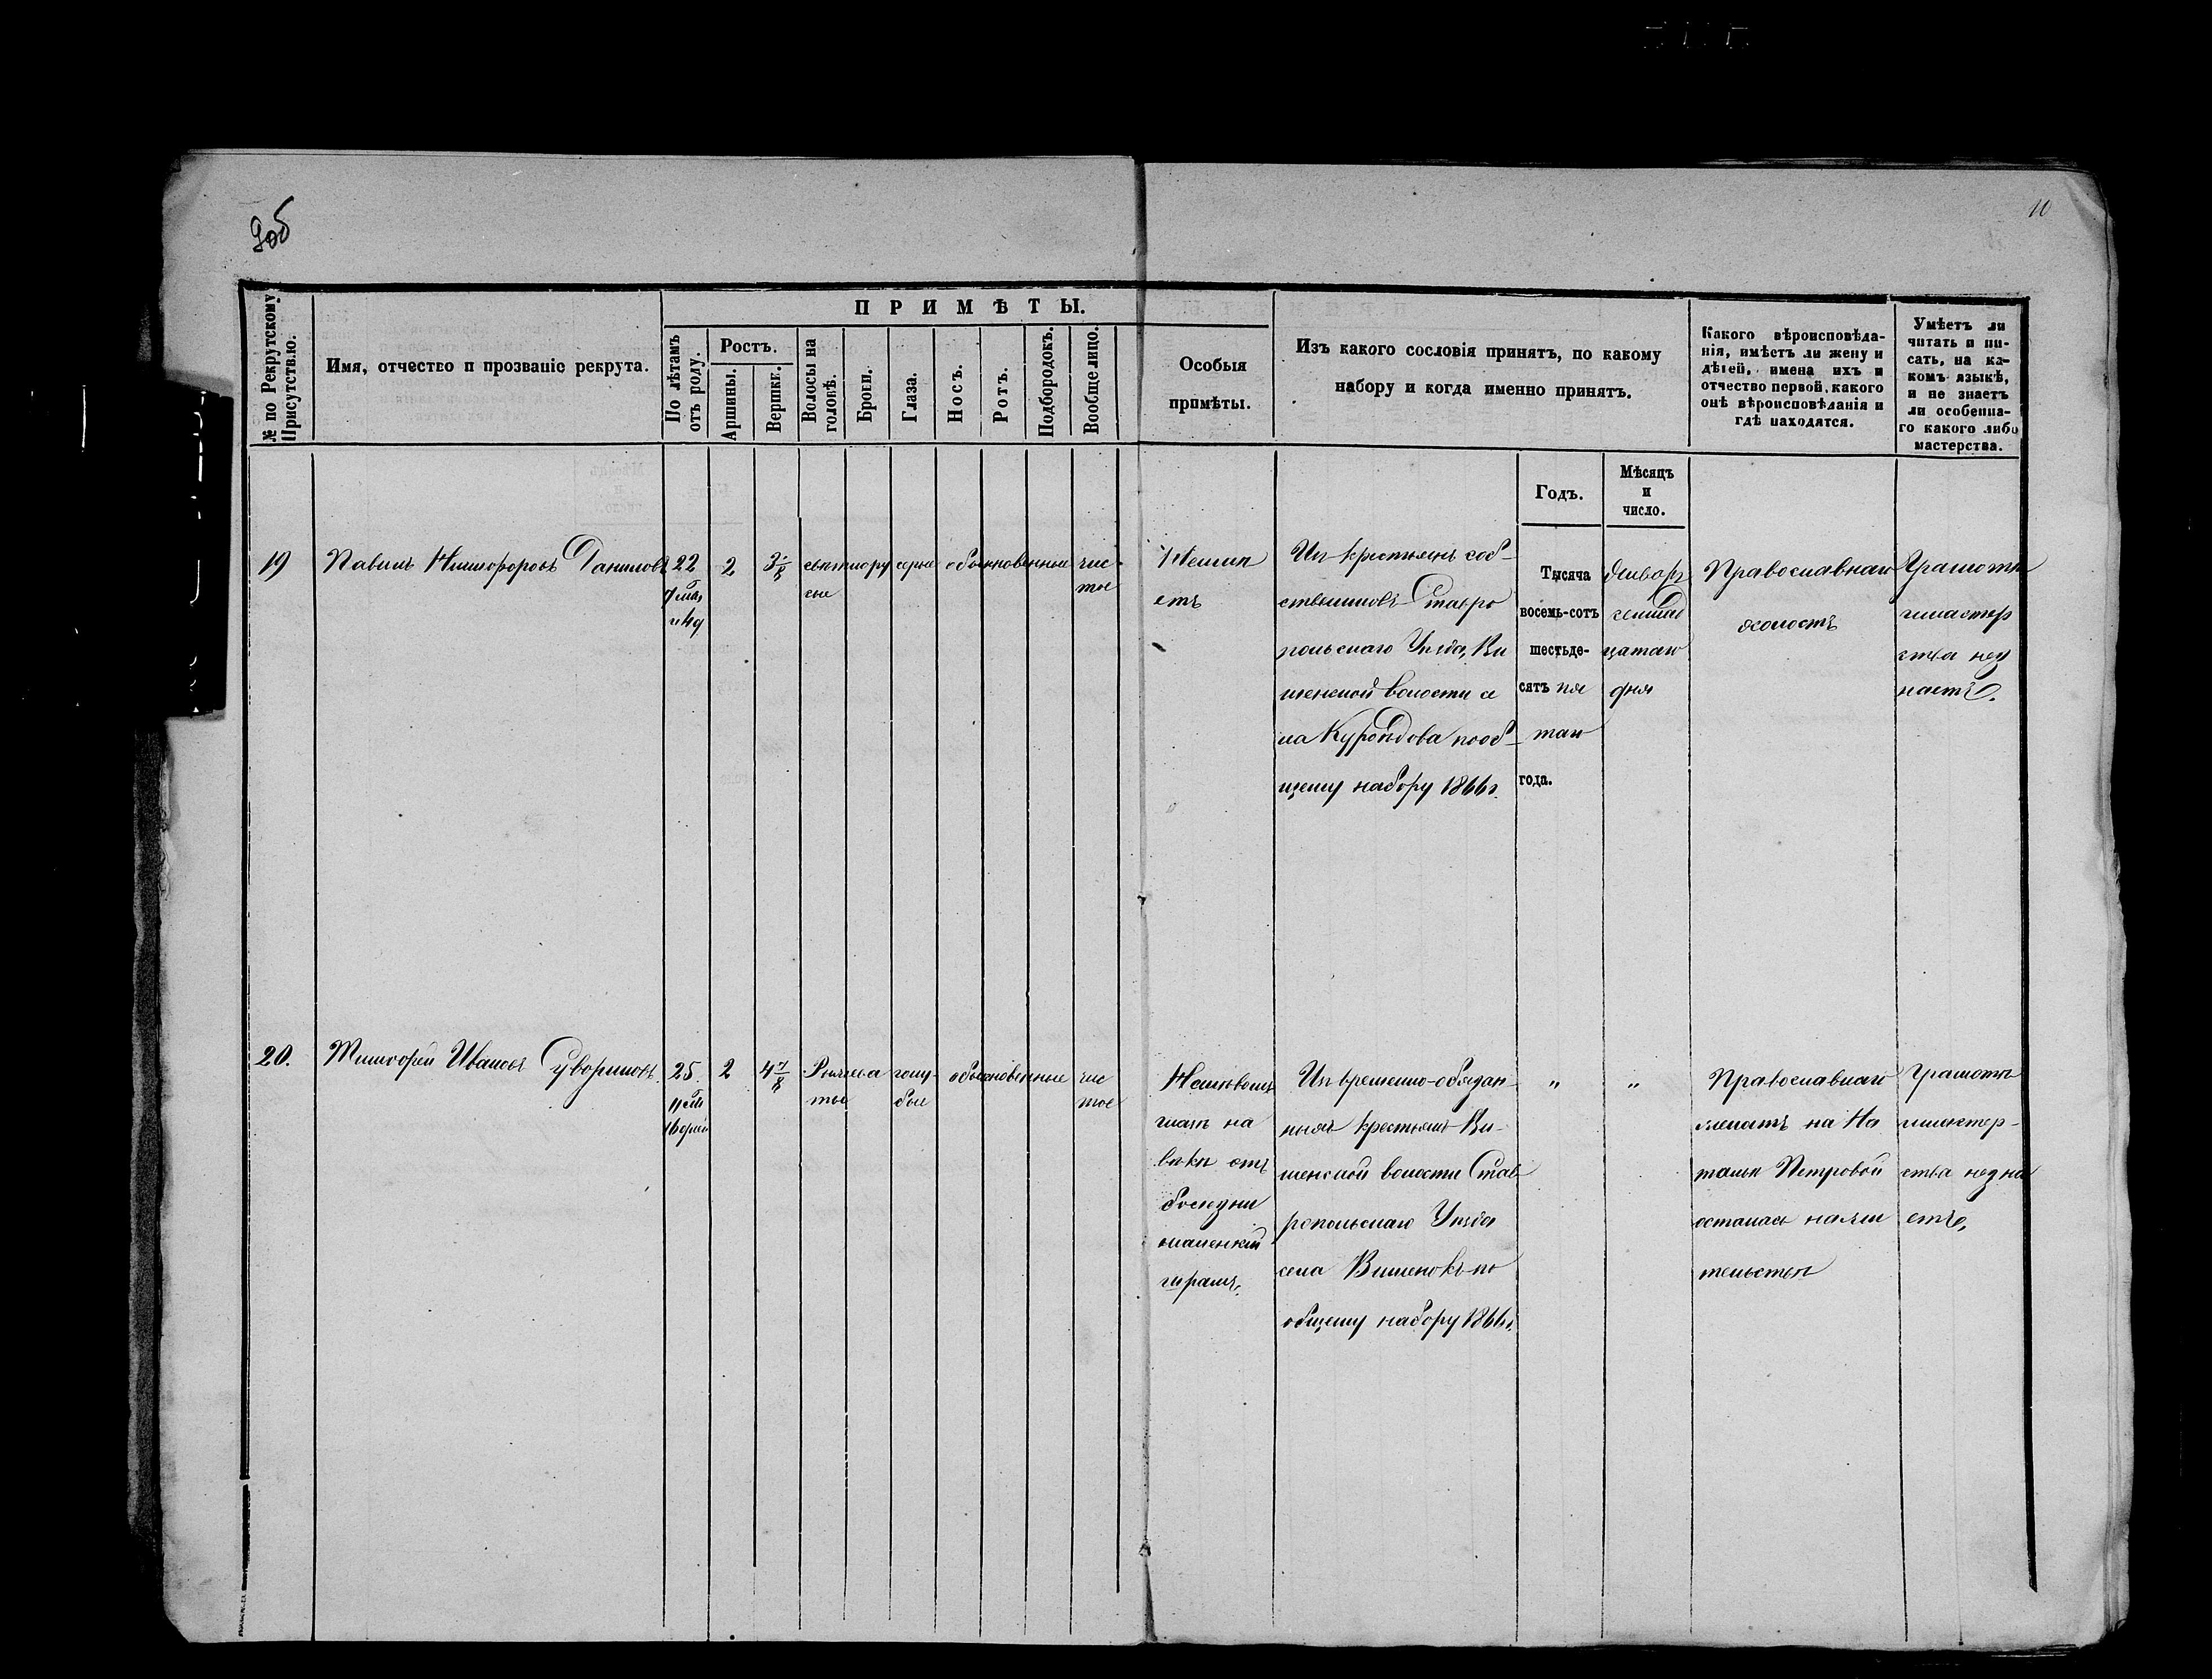 9об
10
№ по Рекрутскому Присутствію.
Имя, отчество и прозваніе рекрута.
ПРИМѢТЫ.
По лѣтамъ отъ роду.
Ростъ.
Аршины.
Вершки.
Волосы на головѣ.
Брови.
Глаза.
Носъ.
Ротъ.
Подбородокъ.
Вообще лицо.
Особыя
примѣты.
Изъ какого сословія принятъ, по какому
набору и когда именно принятъ.
Какого вѣроисповѣда-
нія, имѣетъ ли жену и
дѣтей, имена ихъ и
отчество первой, какого
онѣ вѣроисповѣданія и
гдѣ находятся.
Умѣетъ ли
читать и пи-
сать, на ка-
комъ языкѣ,
и не знаетъ
ли особенна-
го какого либо
мастерства.
Годъ.
Мѣсяцъ
и
число.
19
Павелъ Никифоровъ Даниловъ
22
2
3
сѣрые
обыкновенные
чис-
тое
Неимѣ
етъ
Изъ крестьянъ соб-
ственниковъ Ставро
польскаго Уѣзда, Ви
шенской волости се
ла Куроѣдова по об-
щему набору 1866 г.
Тысяча
восемь-сотъ
шестьде-
сятъ пя
таго
года.
Января
цатаго
дня
Православнаго
холостъ
Грамотѣ
имастер
ства нез
наетъ.
20.
Ивановъ
25
2
4 7/8
голу-
бые
обыкновенные
чис
тое
глазъ на
вѣкѣ отъ
болезни
маленкій
шрамъ.
Изъ временно-обязан-
ныхъ крестьянъ Ви-
шенской волости Став
ропольскаго Уѣзда
села Вишенокъ по
общему набору 1866 г.
„
„
Православнаго
женатъ на На
тальи Петровой
осталась на жи
тельствѣ
Грамотѣ
имастер-
ства незна
етъ.